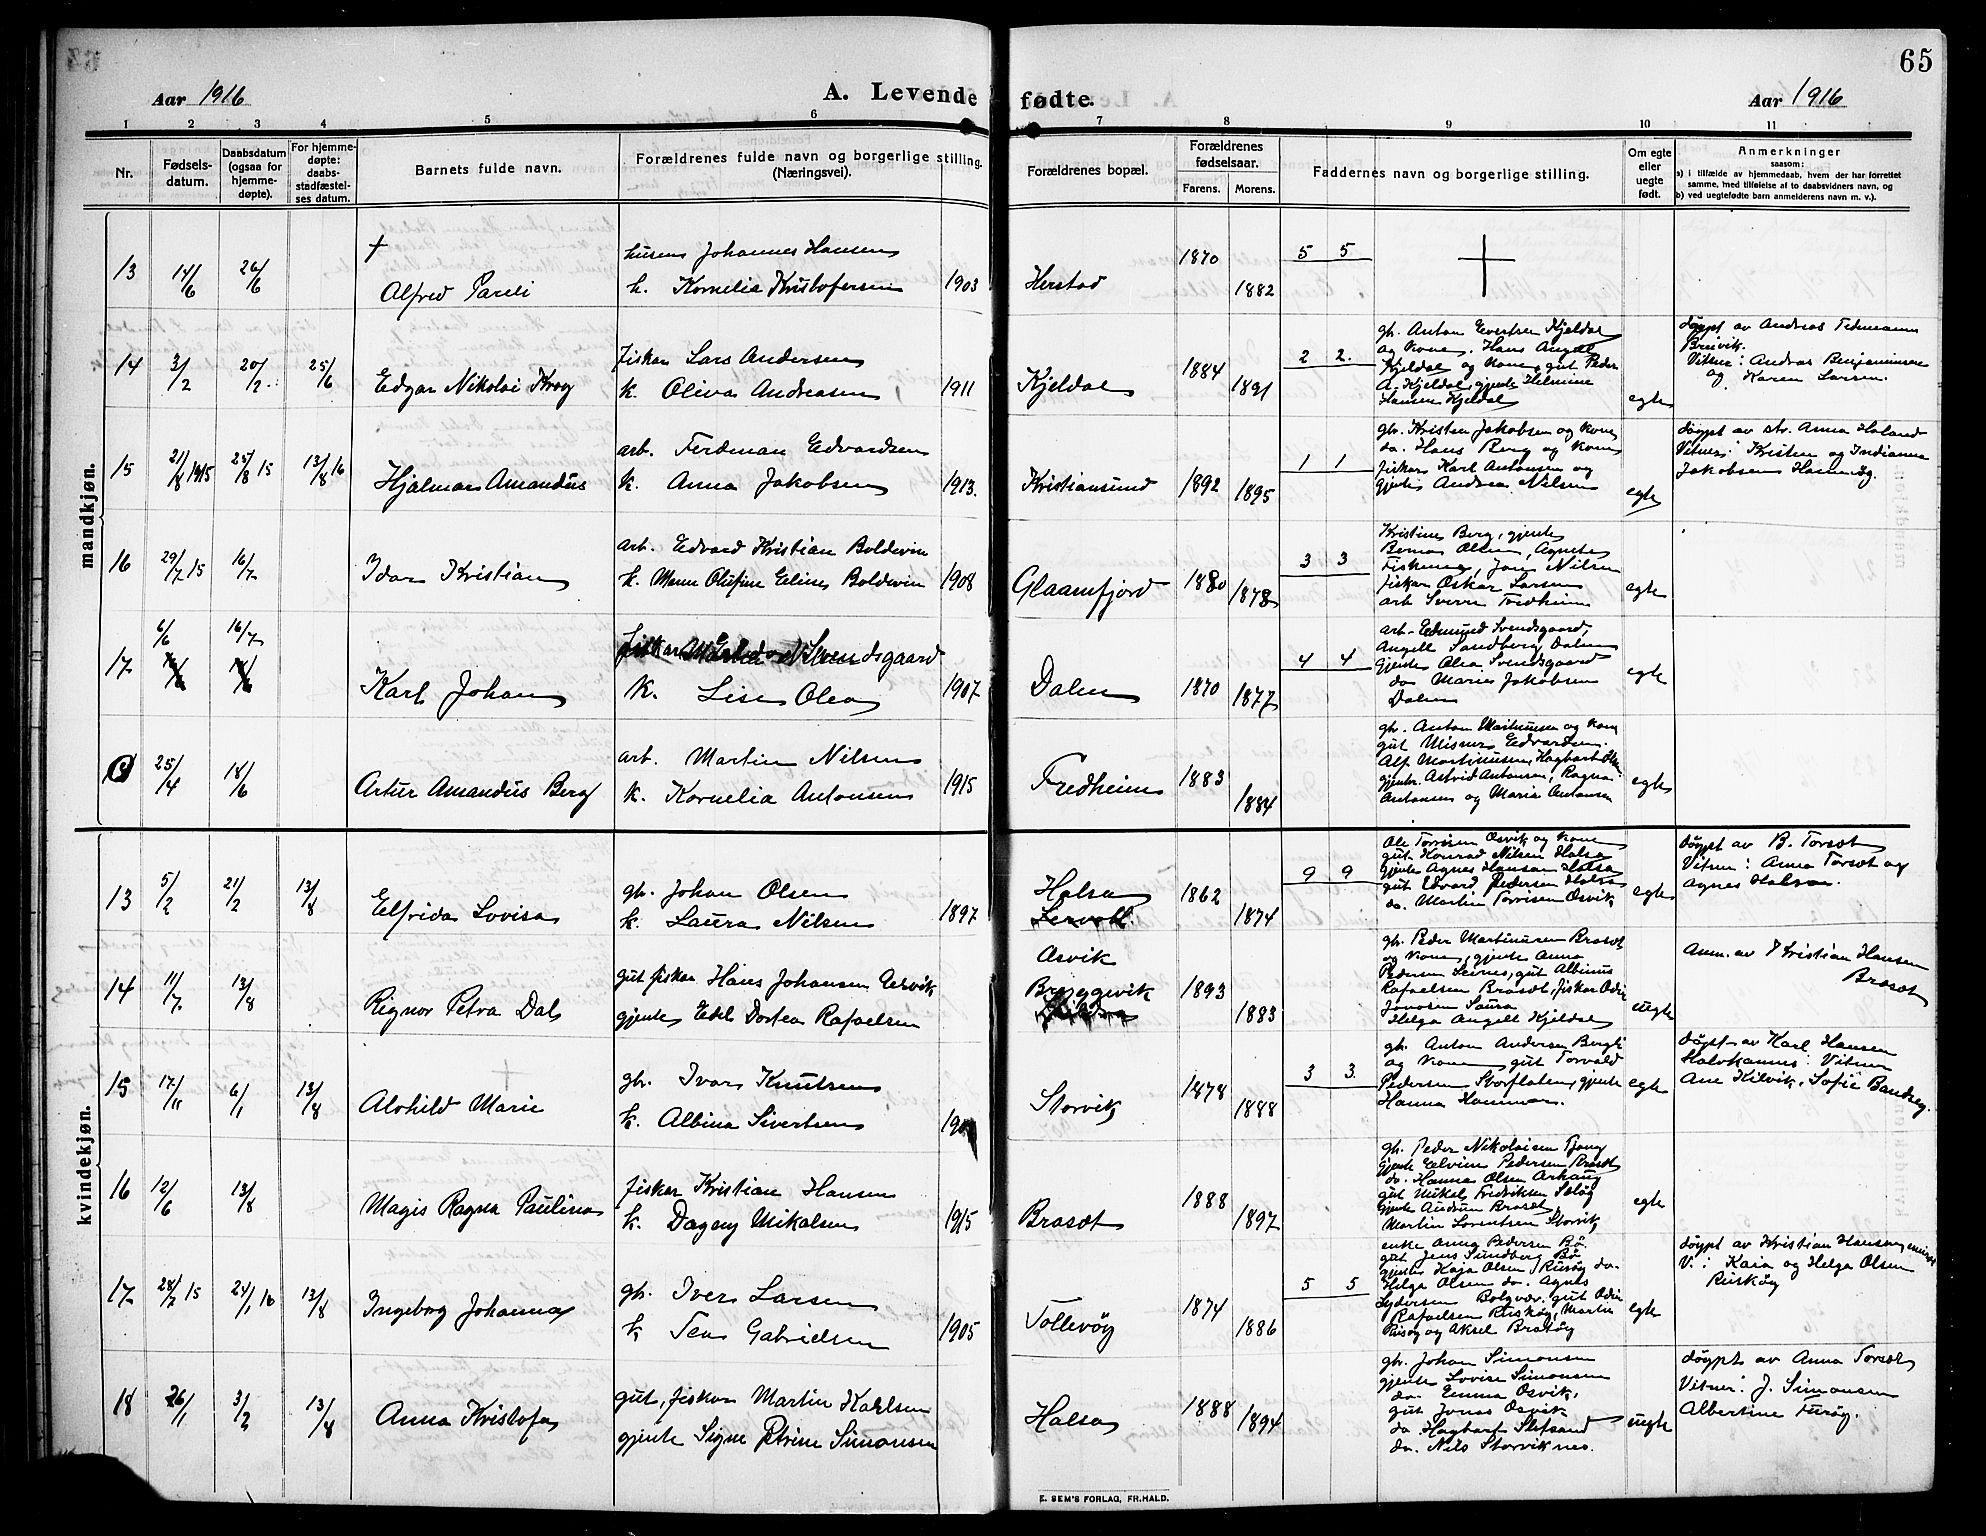 65
Aar 1916
A. Levende fødte.
Aar 1916
1 2 3 4 5 6 7 8 9 10 11
Nr.
Fødsels-
datum.
Daabsdatum
(ogsaa for
hjemme-
døpte).
For hjemme-
døpte:
daabs-
stadfæstel-
ses datum.
Barnets fulde navn.
Forældrenes fulde navn og borgerlige stilling.
(Næringsvei).
Forældrenes bopæl.
Forældrenes
fødselsaar.
Farens. Morens.
Faddernes navn og borgerlige stilling.
Om egte
eller
uegte
født.
Anmerkninger
saasom:
a) i tilfælde av hjemmedaab, hvem der har forrettet
samme, med tilføielse af to daabsvidners navn, og
b) ved uegtefødte barn anmelderens navn m. v.).
mandkjøn.
13 14/6 26/6
†
Alfred Pareli
Johannes Hansen
k. Kornelia Kristofersen 1903
Herstad
1870 1882
5 5
14 3/2 20/2 25/6
Edgar Nikolai Krog
fisker Lars Andersen
k. Oliva Andreasen 1911
Kjeldal
1884 1891
2 2.
gb. Anton Evertsen Kjeldal
og kone. Hans Angel
Kjeldal og kone, gut Peder
A. Kjeldal, gjente Helmine
Hansen Kjeldal
egte
døypt av Andreas Tidemann
Breivik.
Vitner: Andreas Benjaminsen
og Karen Larsen.
15 21/8 1915 25/8 15 13/8 16
Hjalmar Amandus
arb. Ferdinan Edvardsen
k. Anna Jakobsen 1913.
Kristiansund
1892 1895
1 1
gb. Kristen Jakobsen og kone
do. Hans Berg og kone
fisker Karl Antonsen og
gjente Andrea Nilsen
egte
døypt av Anna Haland
Vitner: Kristen og Indianna
Jakobsen
16 29/7 15 16/7
Idar Kristian
arb. Edvard Kristian Boldevin
k. Olufine Eline Boldevin 1908
Glaamfjord
1880 1878
3 3
Kristine Berg, gjente
Olsen, Agnete
Jon Nilsen
fisker Oskar Larsen
arb Sverre Fredheim
egte
17 6/6 16/7
Karl Johan
fisker Svendsgaard
k. Lise Olea 1907
Dalen
1870 1877
4 4
arb. Edmund Svendsgaard,
Angell Sandberg Dalen
gjente Olea Svendsgaard
do Marie Jakobsen
Dalen
egte
25/4 18/6
Artur Amandus Berg
arb. Martin Nilsen
k. Kornelia Antonsen 1915
Fredheim
1883 1884
gb. Anton Martinusen og kone
gut Edvardsen.
Alf Martinusen, Hagbart
gjenter Astrid Antonsen, Ragna
Antonsen og Maria Antonsen
egte
kvindekjøn.
13 5/2 21/2 13/8
Elfrida Lovisa
gb. Johan Olsen
k. Laura Nilsen 1897
Halsa
1862 1874
9 9
Ole Torrisen Osvik og kone
gut. Konrad Nilsen Halsa
gjente Agnes Hansen Halsa
gut Edvard Pedersen Halsa
do. Martin Torrisen Osvik
egte
døypt av B. Torsæt
Vitner: Anna Torsæt og
Agnes Halsa.
14 11/7 13/8
Rignor Petra Dal
gut fisker Hans Johansen
gjente Edel Dortea Rafaelsen
Osvik
Bryggevik
1893 1883
gb. Peder Martinusen Brasæt
og kone, gjente Anna
Pedersen Seines, gut Albinus
Rafaelsen Brasæt, fisker Odin
Jonasen Saura
Helga Angell Kjeldal
uegte
Anm. av Kristian Hansen
Brasæt
15 17/11 6/1 13/8
†
Alohild Marie
gb. Ivar Knutsen
k. Albina Sivertsen
Storvik
1878 1888
3 3.
gb. Anton Andersen
og kone gut Torvald
Pedersen Storflaten, gjente
Hanna Hammar.
egte
døypt av Karl Hansen
Vitner
Ane Kilvik, Sofie
16 12/6 13/8
Magis Ragna Paulina
fisker Kristian Hansen
k. Dagny Mikalsen 1915
Brasæt
1888 1897
gb. Peder Nikolaisen Tjong
gjente Elvine Pedersen Brasæt
do. Hanna Olsen Arhaug
gut Mikal Fredriksen Seløy
gjente Audrun Brasæt,
Martin Lorentsen Storvik
egte
17 28/7 15 24/1 16 13/8
Ingeborg Johanna
gb. Iver Larsen
k Tea Gabrielsen 1905
Tollevøy
1874 1886
5 5
enke Anna Pedersen Bø.
gut Jens Sundberg Bø
gjente Kaja Olsen Risøy do.
Helga Olsen do. Agnes
Sydersen Bolgvær. gut Odin
Rafaelsen Riskøy, Martin
Risøy og Aksel Bratøy
egte
døypt av Kristian Hansen
V.: Kaia og Helga Olsen
Riskøy
18 26/1 3/2 13/8
Anna Kristofa
gut, fisker Martin Karlsen
gjente Signe Petrine Simonsen
Halsa
1888 1894
gb. Johan Simonsen
gjente Lovise Simonsen
do. Emma Osvik,
gut Jonas Osvik
do Hagbart
do. Nils Storviknes.
uegte
døypt av Anna Torsæt
Vitner: J. Simonsen
Albertine Furøy.
E. SEM'S FORLAG, FR.HALD.